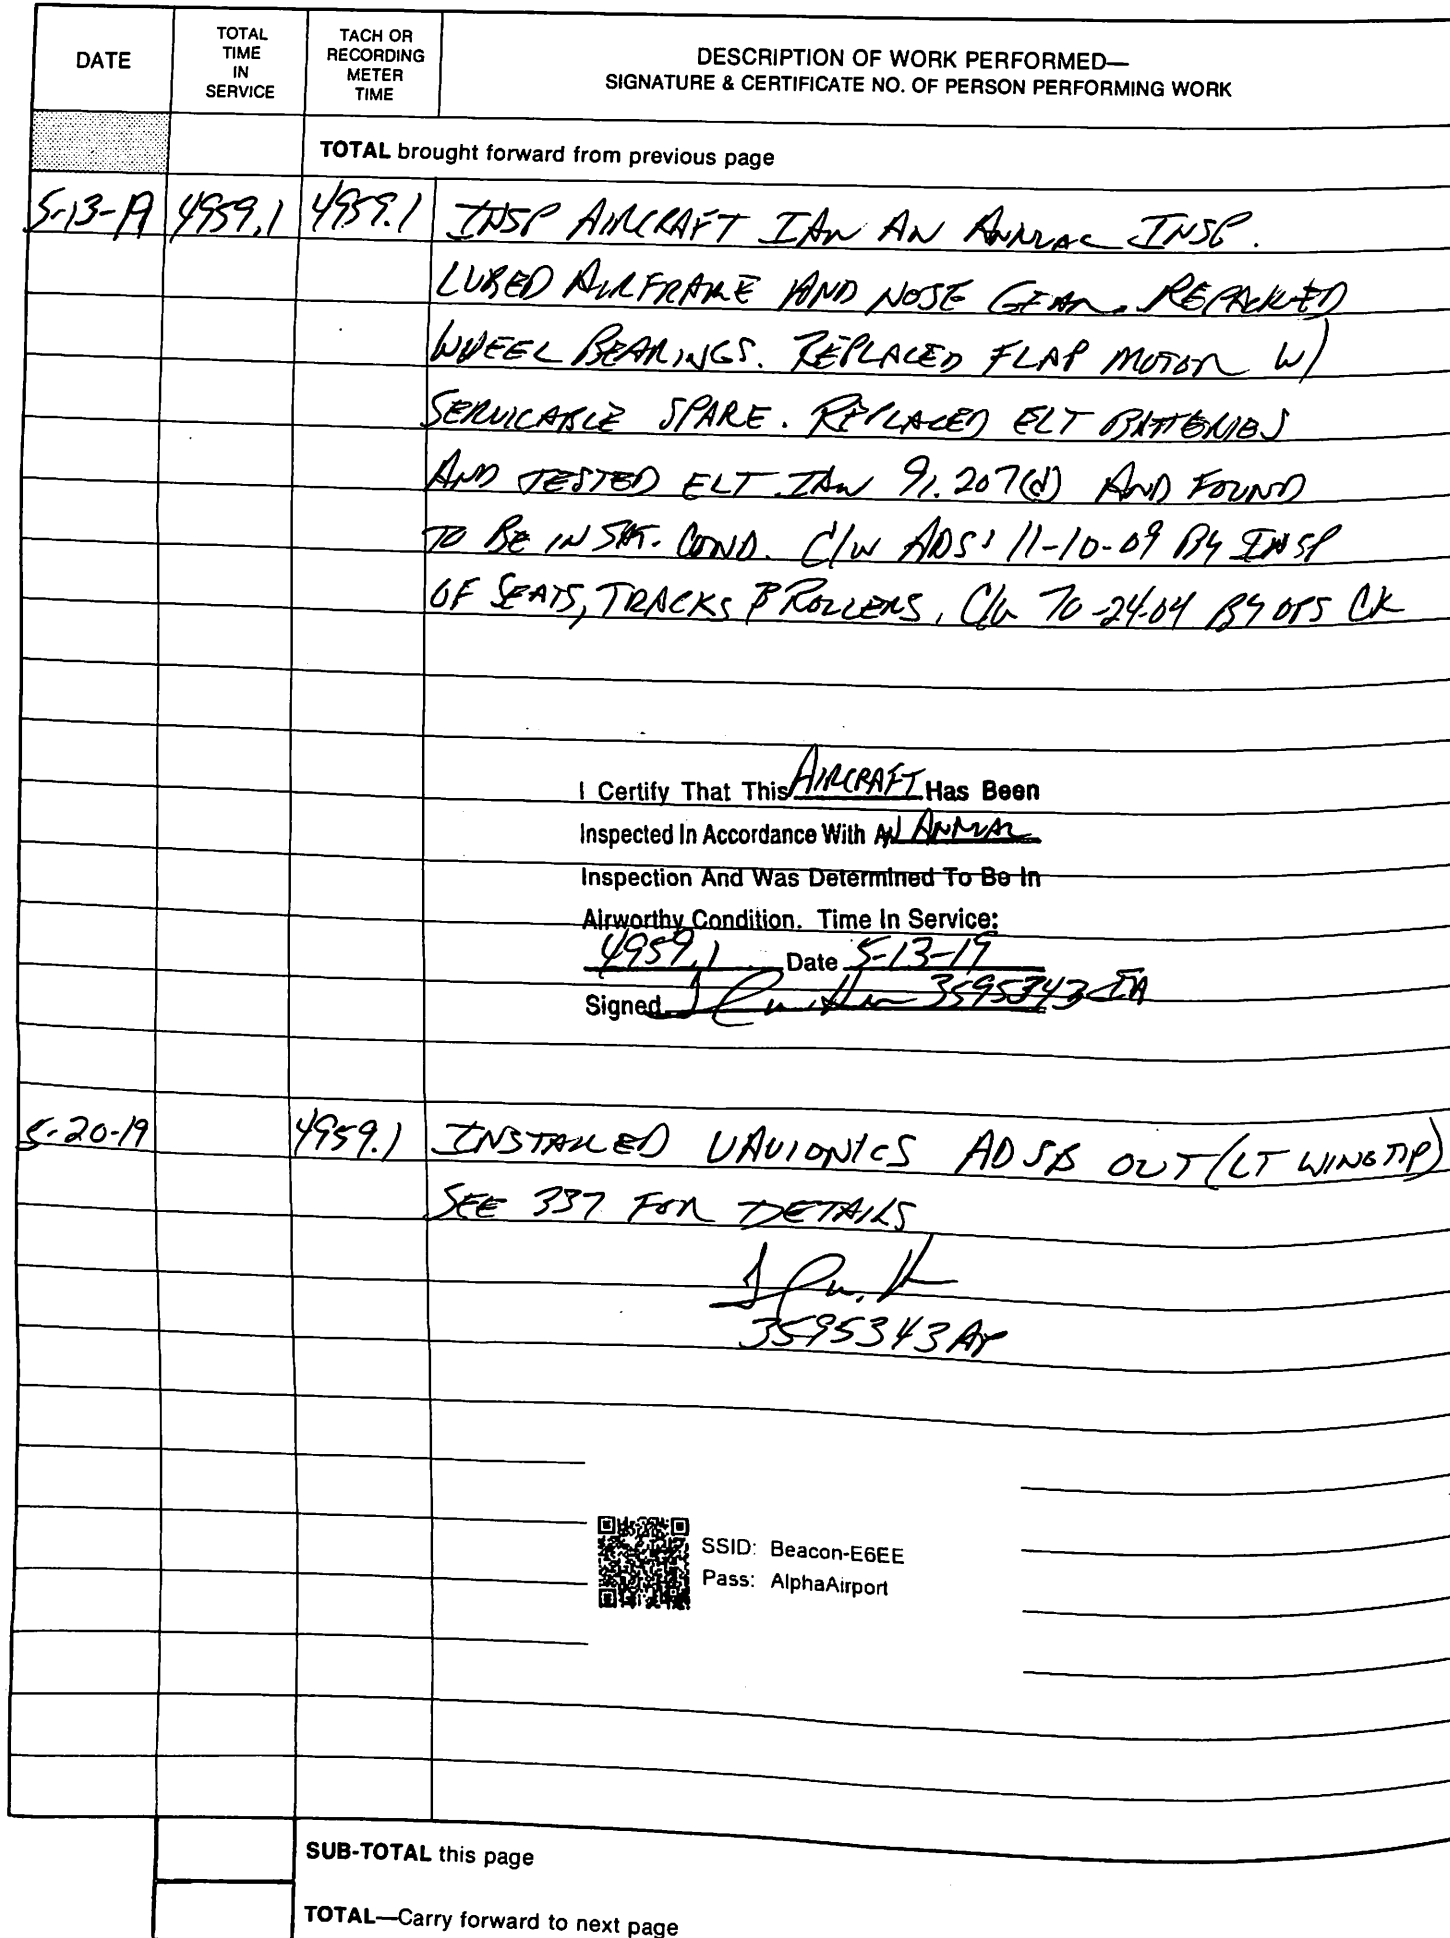 DATE
TOTAL TIME IN SERVICE
TACH OR RECORDING METER TIME
DESCRIPTION OF WORK PERFORMED—
SIGNATURE & CERTIFICATE NO. OF PERSON PERFORMING WORK
TOTAL brought forward from previous page
5-13-19 4959.1 4959.1 INSP AIRCRAFT IAW AN ANNUAL INSP.
LUBED AIRFRAME AND NOSE GEAR. REPACKED
WHEEL BEARINGS. REPLACED FLAP MOTOR W/
SERVICABLE SPARE. REPLACED ELT BATTERIES
AND TESTED ELT IAW 91.207(d) AND FOUND
TO BE IN SAT. COND. C/W ADS: 11-10-09 BY INSP
OF SEATS, TRACKS & ROLLERS, C/W 70-24-04 BY OPS CK
I Certify That This AIRCRAFT Has Been
Inspected In Accordance With AN ANNUAL
Inspection And Was Determined To Be In
Airworthy Condition. Time In Service:
4959.1 Date 5-13-19
Signed 3595343 IA
5-20-19 4959.1 INSTALLED UAVIONICS ADSB OUT (LT WINGTIP)
SEE 337 FOR DETAILS
3595343 AP
SSID: Beacon-E6EE
Pass: AlphaAirport
SUB-TOTAL this page
TOTAL—Carry forward to next page